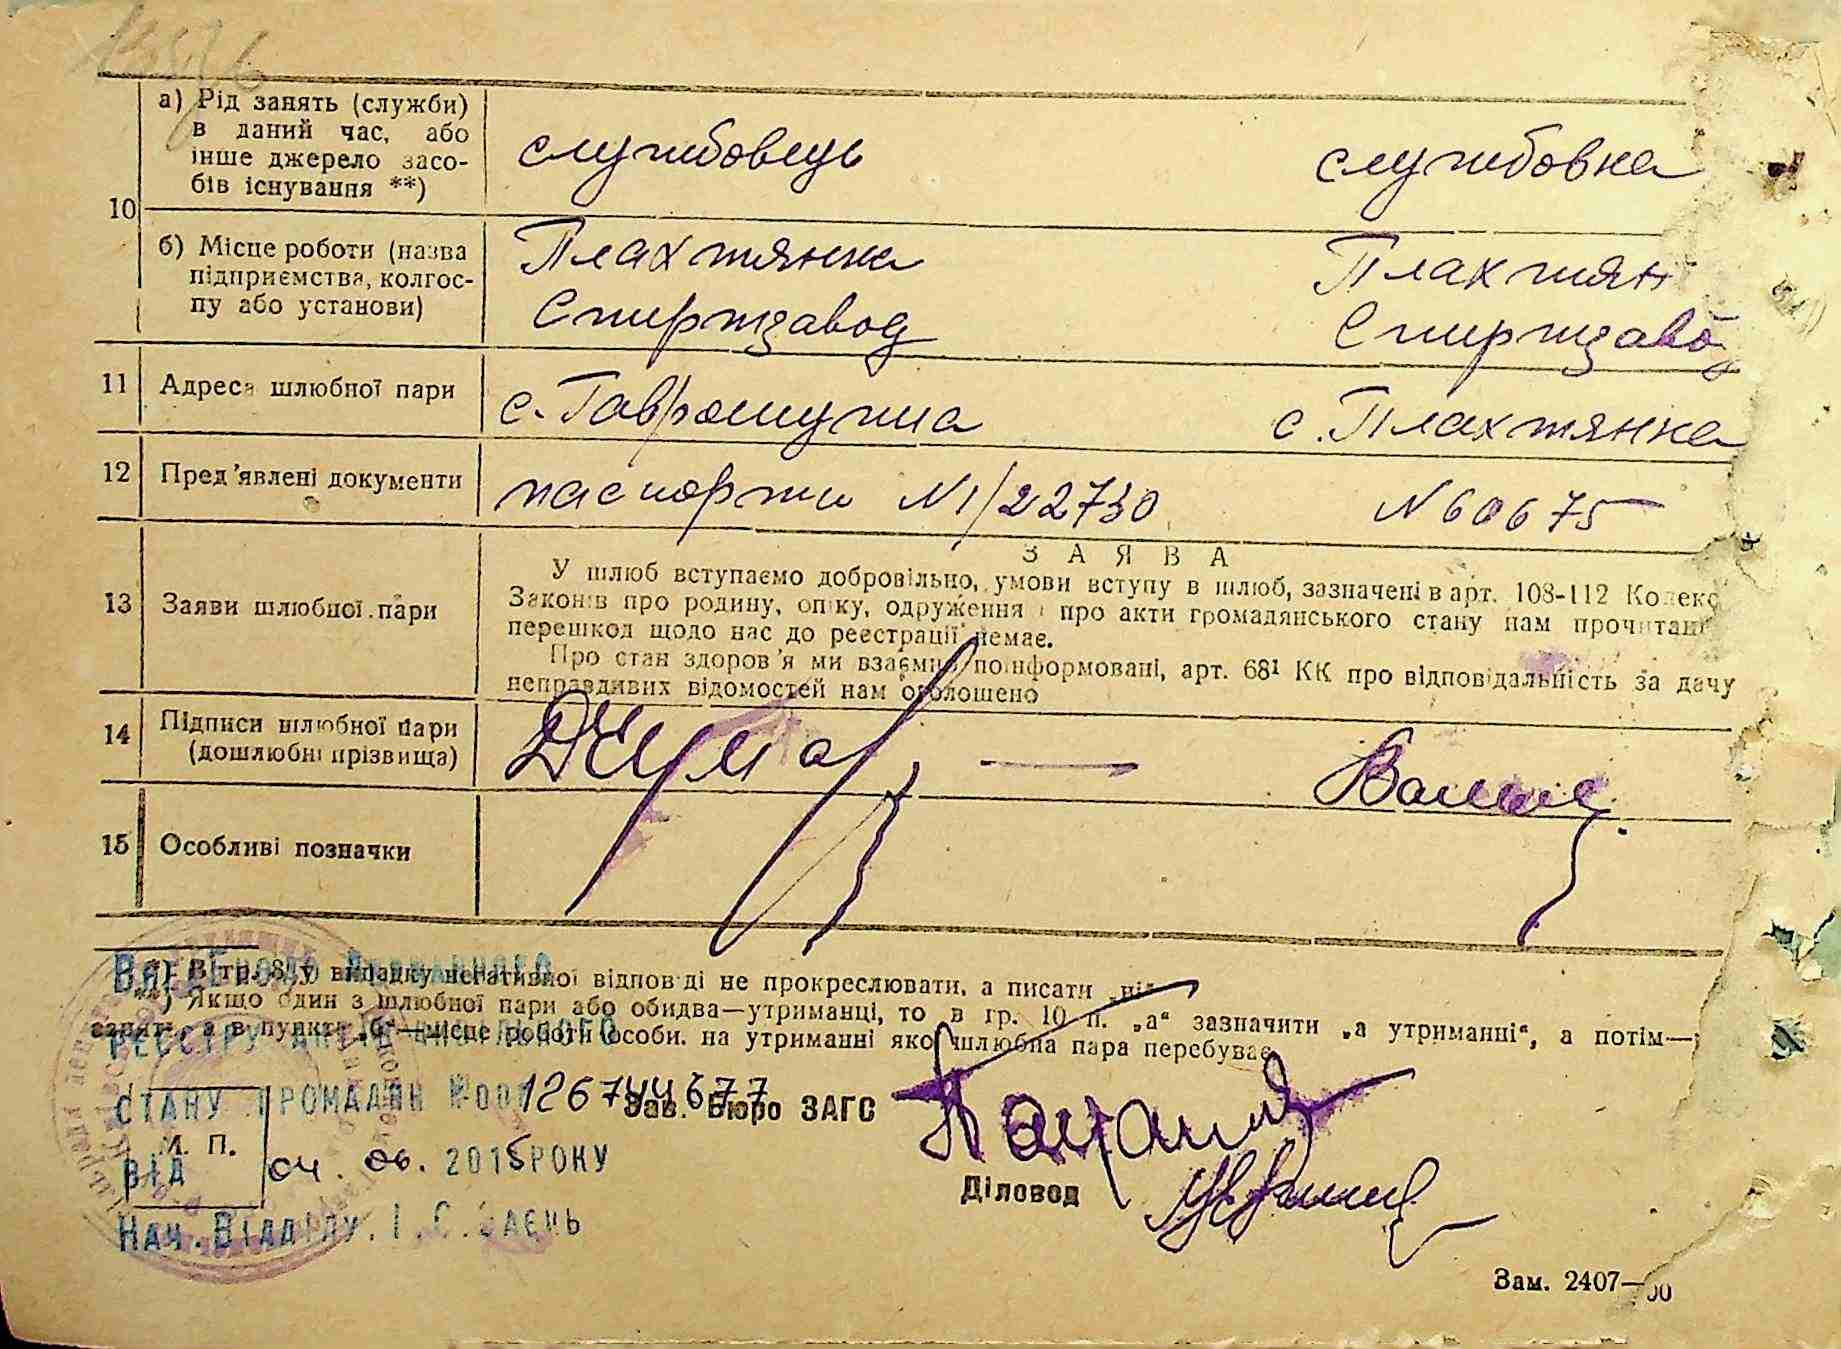 10
а) Рід занять (служби)
в даний час, або
інше джерело засо-
бів існування **)
службовець
службовка
б) Місце роботи (назва
підприємства, колгос-
пу або установи)
Плахтянка
Спиртзавод
Плахтян
Спиртзавод
11 Адреса шлюбної пари
с. Гаврошчина с. Плахтянка
12 Пред'явлені документи
паспорти N1/22730 N60675
13 Заяви шлюбної пари
ЗАЯВА
У шлюб вступаємо добровільно, умови вступу в шлюб, зазначені в арт. 108-112 Кодекс
Законів про родину, опіку, одруження і про акти громадянського стану нам прочитані
перешкод щодо нас до реєстрації немає.
Про стан здоров'я ми взаємно поінформовані, арт. 68¹ КК про відповідальність за дачу
неправдивих відомостей нам оголошено
14 Підписи шлюбної пари
(дошлюбні прізвища)
15 Особливі позначки
*) В гр. 8, у випадку негативної відповіді не прокреслювати, а писати „ні
**) Якщо один з шлюбної пари або обидва—утриманці, то в гр. 10 п. „а“ зазначити „а утриманні“, а потім—
занять, а в пункті „б“—місце роботи особи, на утриманні якої шлюбна пара перебуває
Державного
реєстру актів цивільного
стану громадян №00126744677
Зав. Бюро ЗАГС
М. П.
від 04.06.2015 року
Діловод
Нач. Відділу І.С. Заєць
Зам. 2407—